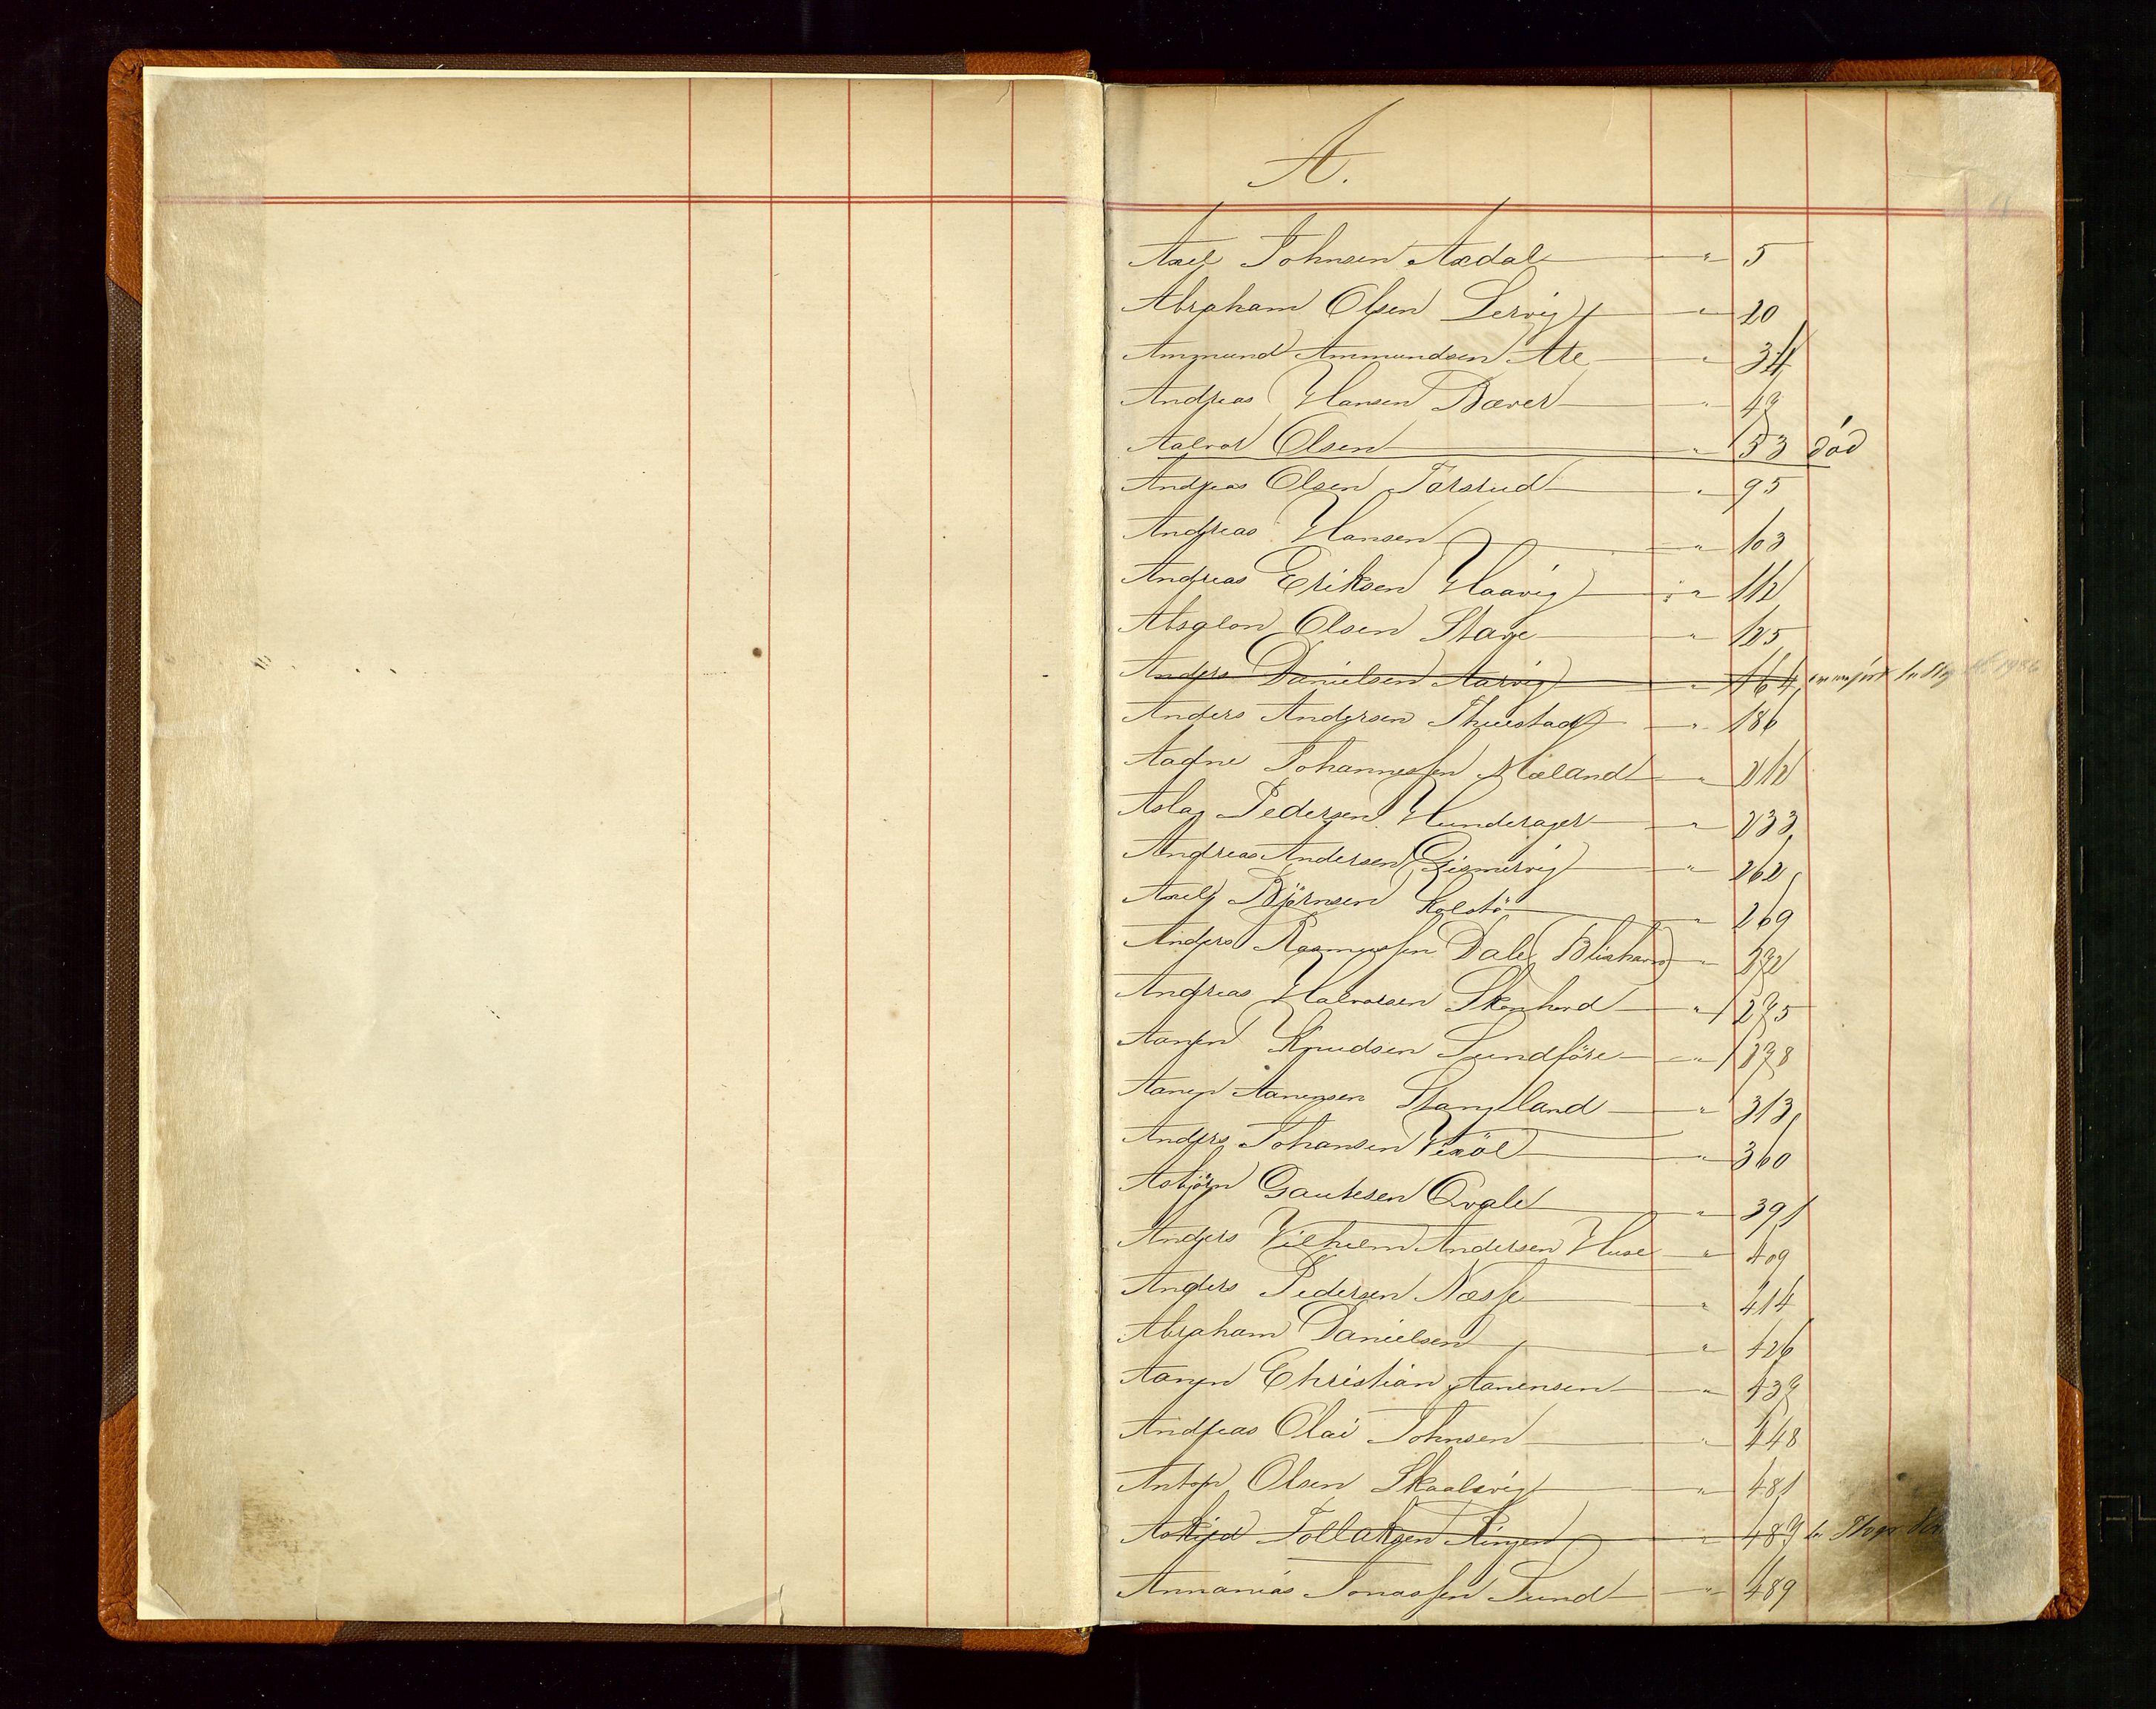 A.
Axel Johnsen Axdal " 5
Abraham Olsen Lervig " 20
Ammund Ammundsen Ale " 34
Andreas Hansen Bæver " 47
Aalvor Olsen " 53 død
Andreas Olsen Torsrud " 95
Andreas Hansen " 103
Andreas Eriksen Haavig " 112
Absalon Olsen Stave " 125
Anders Danielsen Aarvig " 164
Anders Andersen Thuestad " 186
Aadne Johannessen Mæland " 212
Aslag Pedersen Hunderager " 233
Andreas Andersen Gismervig " 262
Axel Björnsen Kolstö " 269
Anders Rasmussen Dale (Blixhavn) " 272
Andreas Halvorsen Skonhord " 275
Aanen Knudsen Sundföre " 278
Aanen Aanensen Stangeland " 313
Anders Johansen Vixöl " 360
Asbjörn Gautesen Qvale " 391
Anders Vilhelm Andersen Huse " 409
Anders Pedersen Næsse " 414
Abraham Danielsen " 426
Aanen Christian Aanensen " 437
Andreas Olai Johnsen " 448
Anton Olsen Skaalevig " 481
Askjed Tollaksen Ringen " 487
Annanias Jonassen Sund " 489